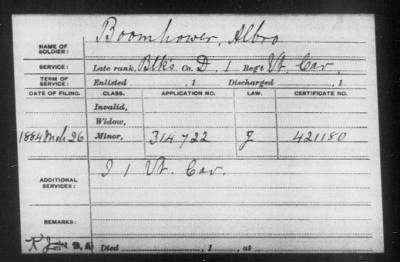 Boomhower, Albro
NAME OF SOLDIER:
SERVICE: Late rank, Blk's Co. D. 1 Reg't Vt. Cav.
TERM OF SERVICE: Enlisted , 1 Discharged , 1
DATE OF FILING. CLASS. APPLICATION NO. LAW. CERTIFICATE NO.
Invalid,
Widow,
1884 Mch 26 Minor, 314722 G 421180
ADDITIONAL SERVICES: I 1 Vt. Cav.
REMARKS:
Died , 1 , at